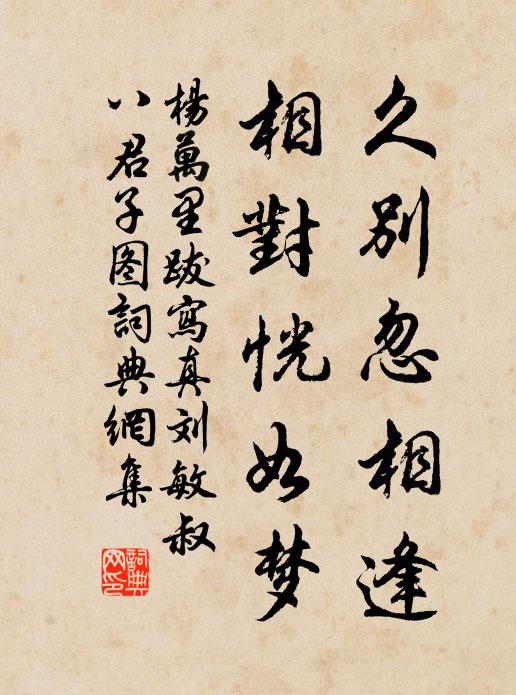 久别忽相逢
相對恍如梦
楊萬里跋寫真刘敏叔
八君子图詞典網集
詞典
网印